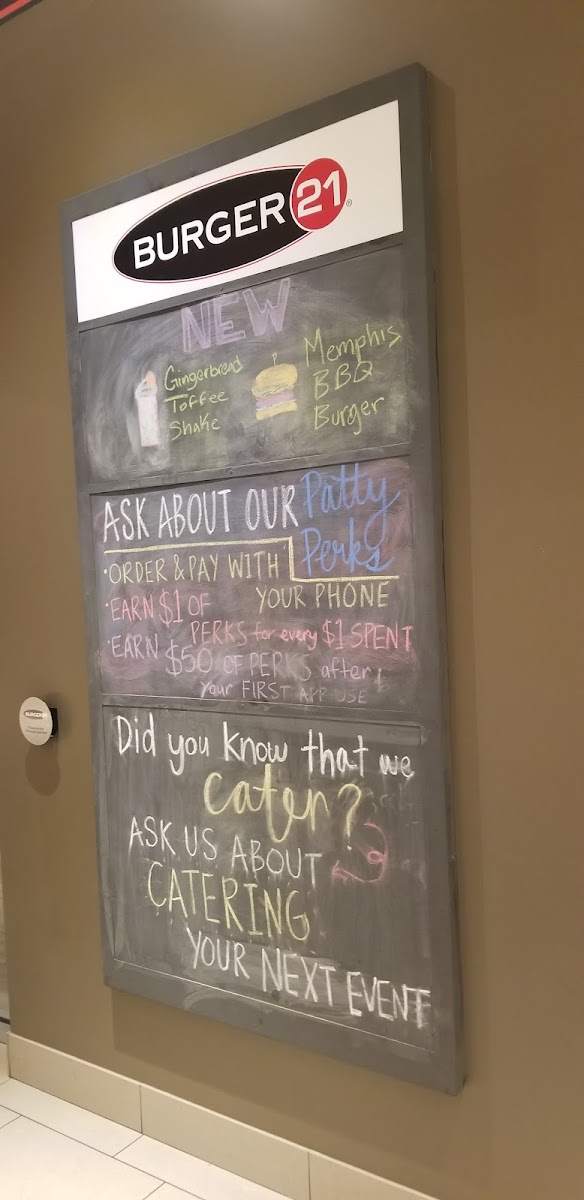 BURGER 21
NEW
Gingerbread
Toffee
Shake
Memphis
BBQ
Burger
ASK ABOUT OUR Patty
Perks
•ORDER & PAY WITH
YOUR PHONE
•EARN $1 OF
PERKS for every $1 SPENT
•EARN $50 OF PERKS after
your FIRST APP USE
Did you know that we
cater?
ASK US ABOUT
CATERING
YOUR NEXT EVENT
BURGER 21